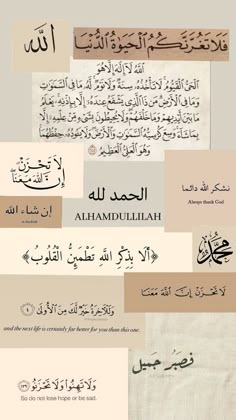 الله
فَلَا تَغُرَّنَّكُمُ الْحَيَوٰةُ الدُّنْيَا
اللَّهُ لَا إِلَٰهَ إِلَّا هُوَ
الْحَيُّ الْقَيُّومُ لَا تَأْخُذُهُ سِنَةٌ وَلَا نَوْمٌ لَهُ مَا فِي السَّمَوَاتِ
وَمَا فِي الْأَرْضِ مَنْ ذَا الَّذِي يَشْفَعُ عِنْدَهُ إِلَّا بِإِذْنِهِ يَعْلَمُ
مَا بَيْنَ أَيْدِيهِمْ وَمَا خَلْفَهُمْ وَلَا يُحِيطُونَ بِشَيْءٍ مِنْ عِلْمِهِ إِلَّا
بِمَا شَاءَ وَسِعَ كُرْسِيُّهُ السَّمَوَاتِ وَالْأَرْضَ وَلَا يَئُودُهُ حِفْظُهُمَا
وَهُوَ الْعَلِيُّ الْعَظِيمُ
لَا تَحْزَنْ
إِنَّ اللَّهَ مَعَنَا
الحمد لله
ALHAMDULLILAH
نشكر الله دائما
Always thank God
إن شاء الله
محمد
﴿أَلَا بِذِكْرِ اللَّهِ تَطْمَئِنُّ الْقُلُوبُ﴾
لَا تَحْزَنْ إِنَّ اللَّهَ مَعَنَا
وَلَلْآخِرَةُ خَيْرٌ لَكَ مِنَ الْأُولَىٰ ٤
and the next life is certainly far better for you than this one.
فصبر جميل
وَلَا تَهِنُوا وَلَا تَحْزَنُوا ١٣٩
So do not lose hope or be sad.